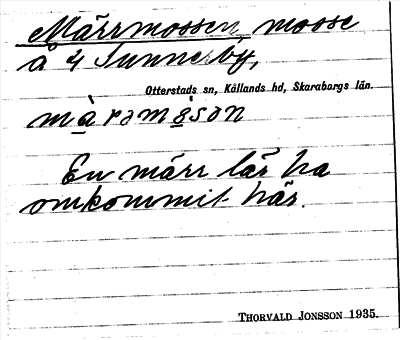 Märrmossen, mosse
å 4 Sunnersby,
Otterstads sn, Kållands hd, Skaraborgs län.
màramòson
En märr lär ha
omkommit här.
THORVALD JONSSON 1935.